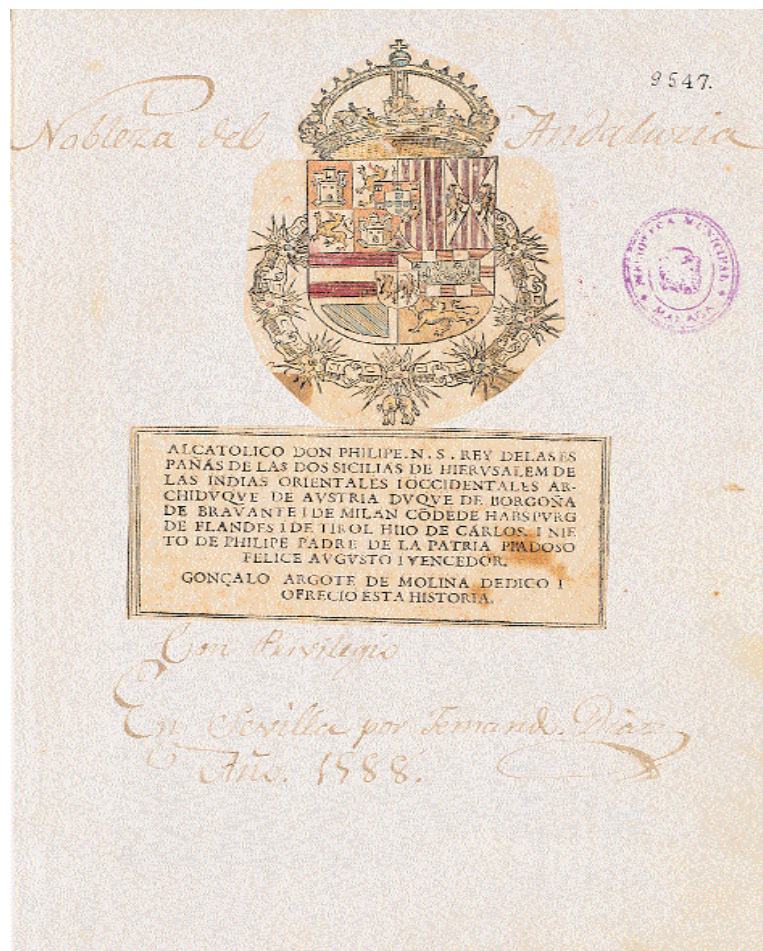 9547.
Nobleza del Andaluzia
BIBLIOTECA MUNICIPAL
MALAGA
ALCATOLICO DON PHILIPE. N. S. REY DELAS ES
PAÑAS DE LAS DOS SICILIAS DE HIERVSALEM DE
LAS INDIAS ORIENTALES I OCCIDENTALES AR-
CHIDVQVE DE AVSTRIA DVQVE DE BORGOÑA
DE BRAVANTE I DE MILAN CÕDE DE HABSPVRG
DE FLANDES I DE TIROL HIIO DE CARLOS. I NIE
TO DE PHILIPE PADRE DE LA PATRIA PIADOSO
FELICE AVGVSTO I VENCEDOR.
GONÇALO ARGOTE DE MOLINA DEDICO I
OFRECIO ESTA HISTORIA.
Con Previlegio
En Sevilla por Fernand. Diaz
Año. 1588.